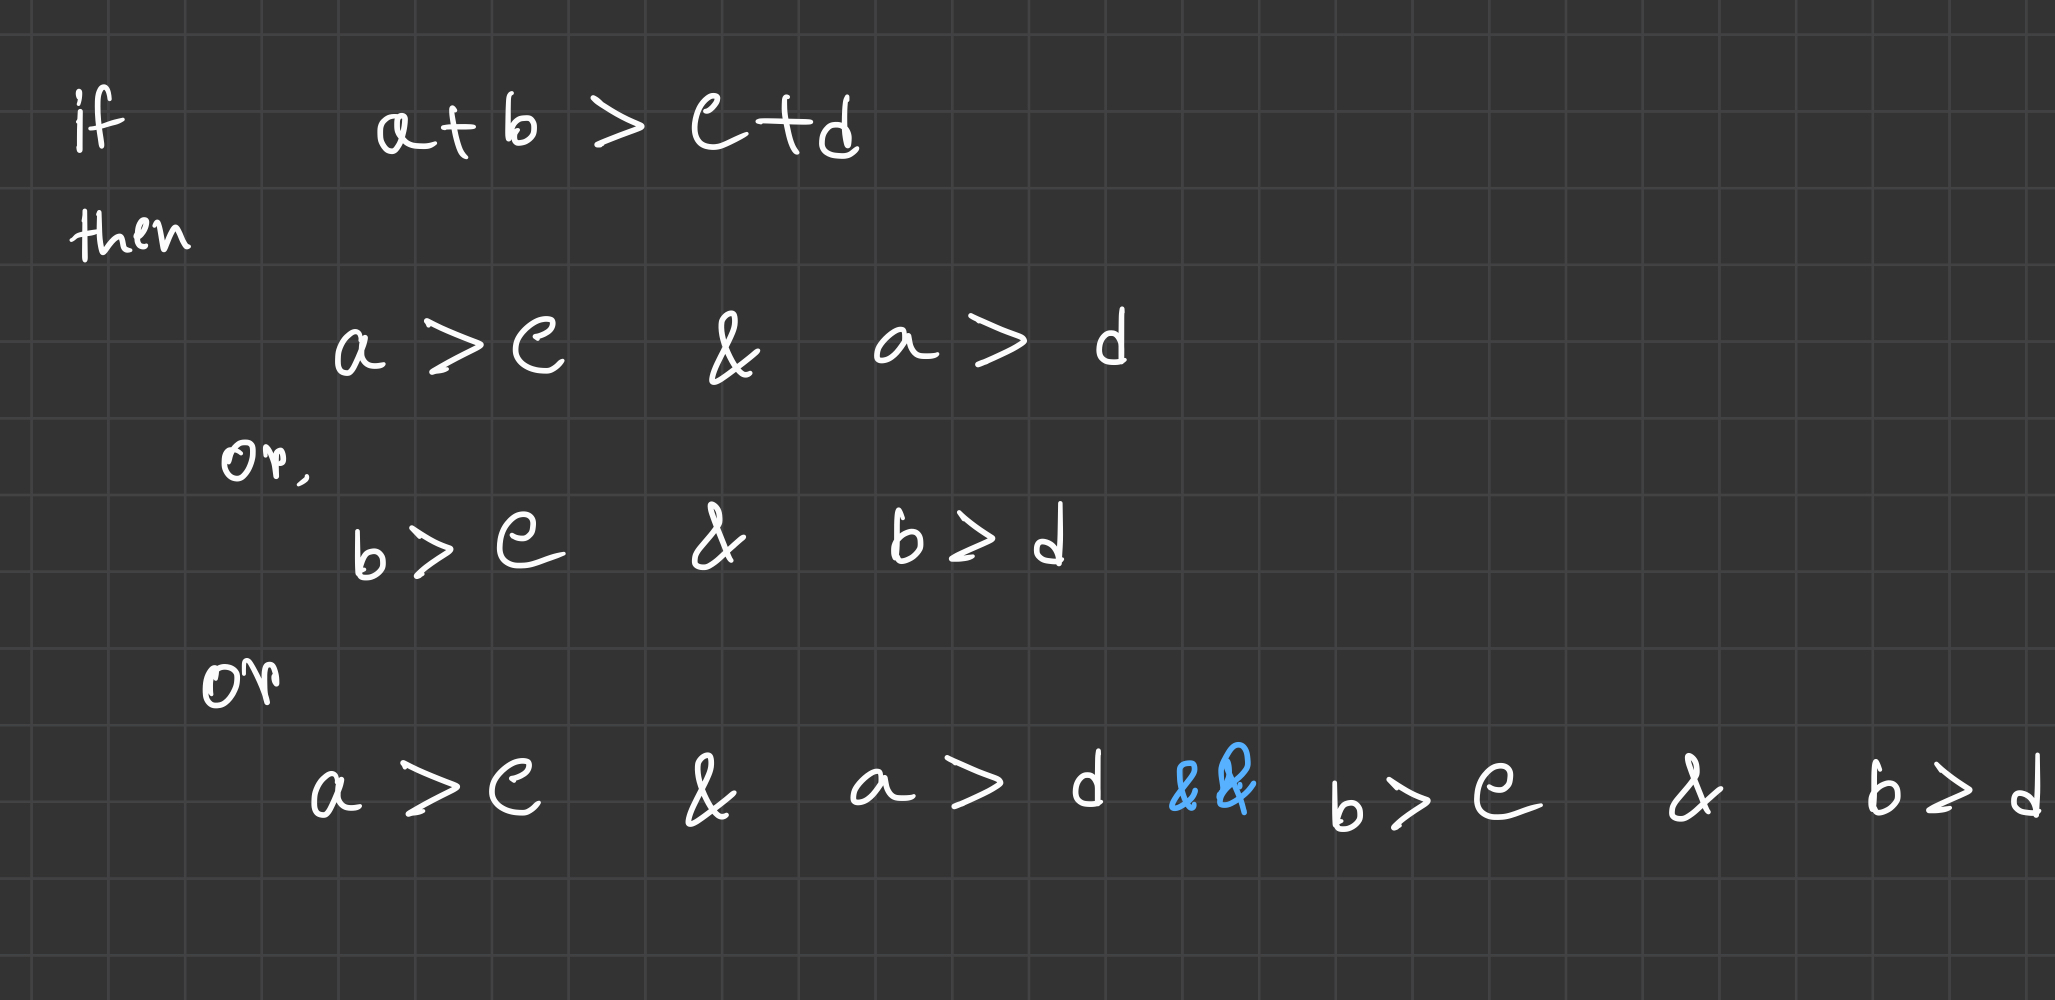 if a+b > c+d
then
a > c & a > d
or,
b > c & b > d
or
a > c & a > d && b > c & b > d